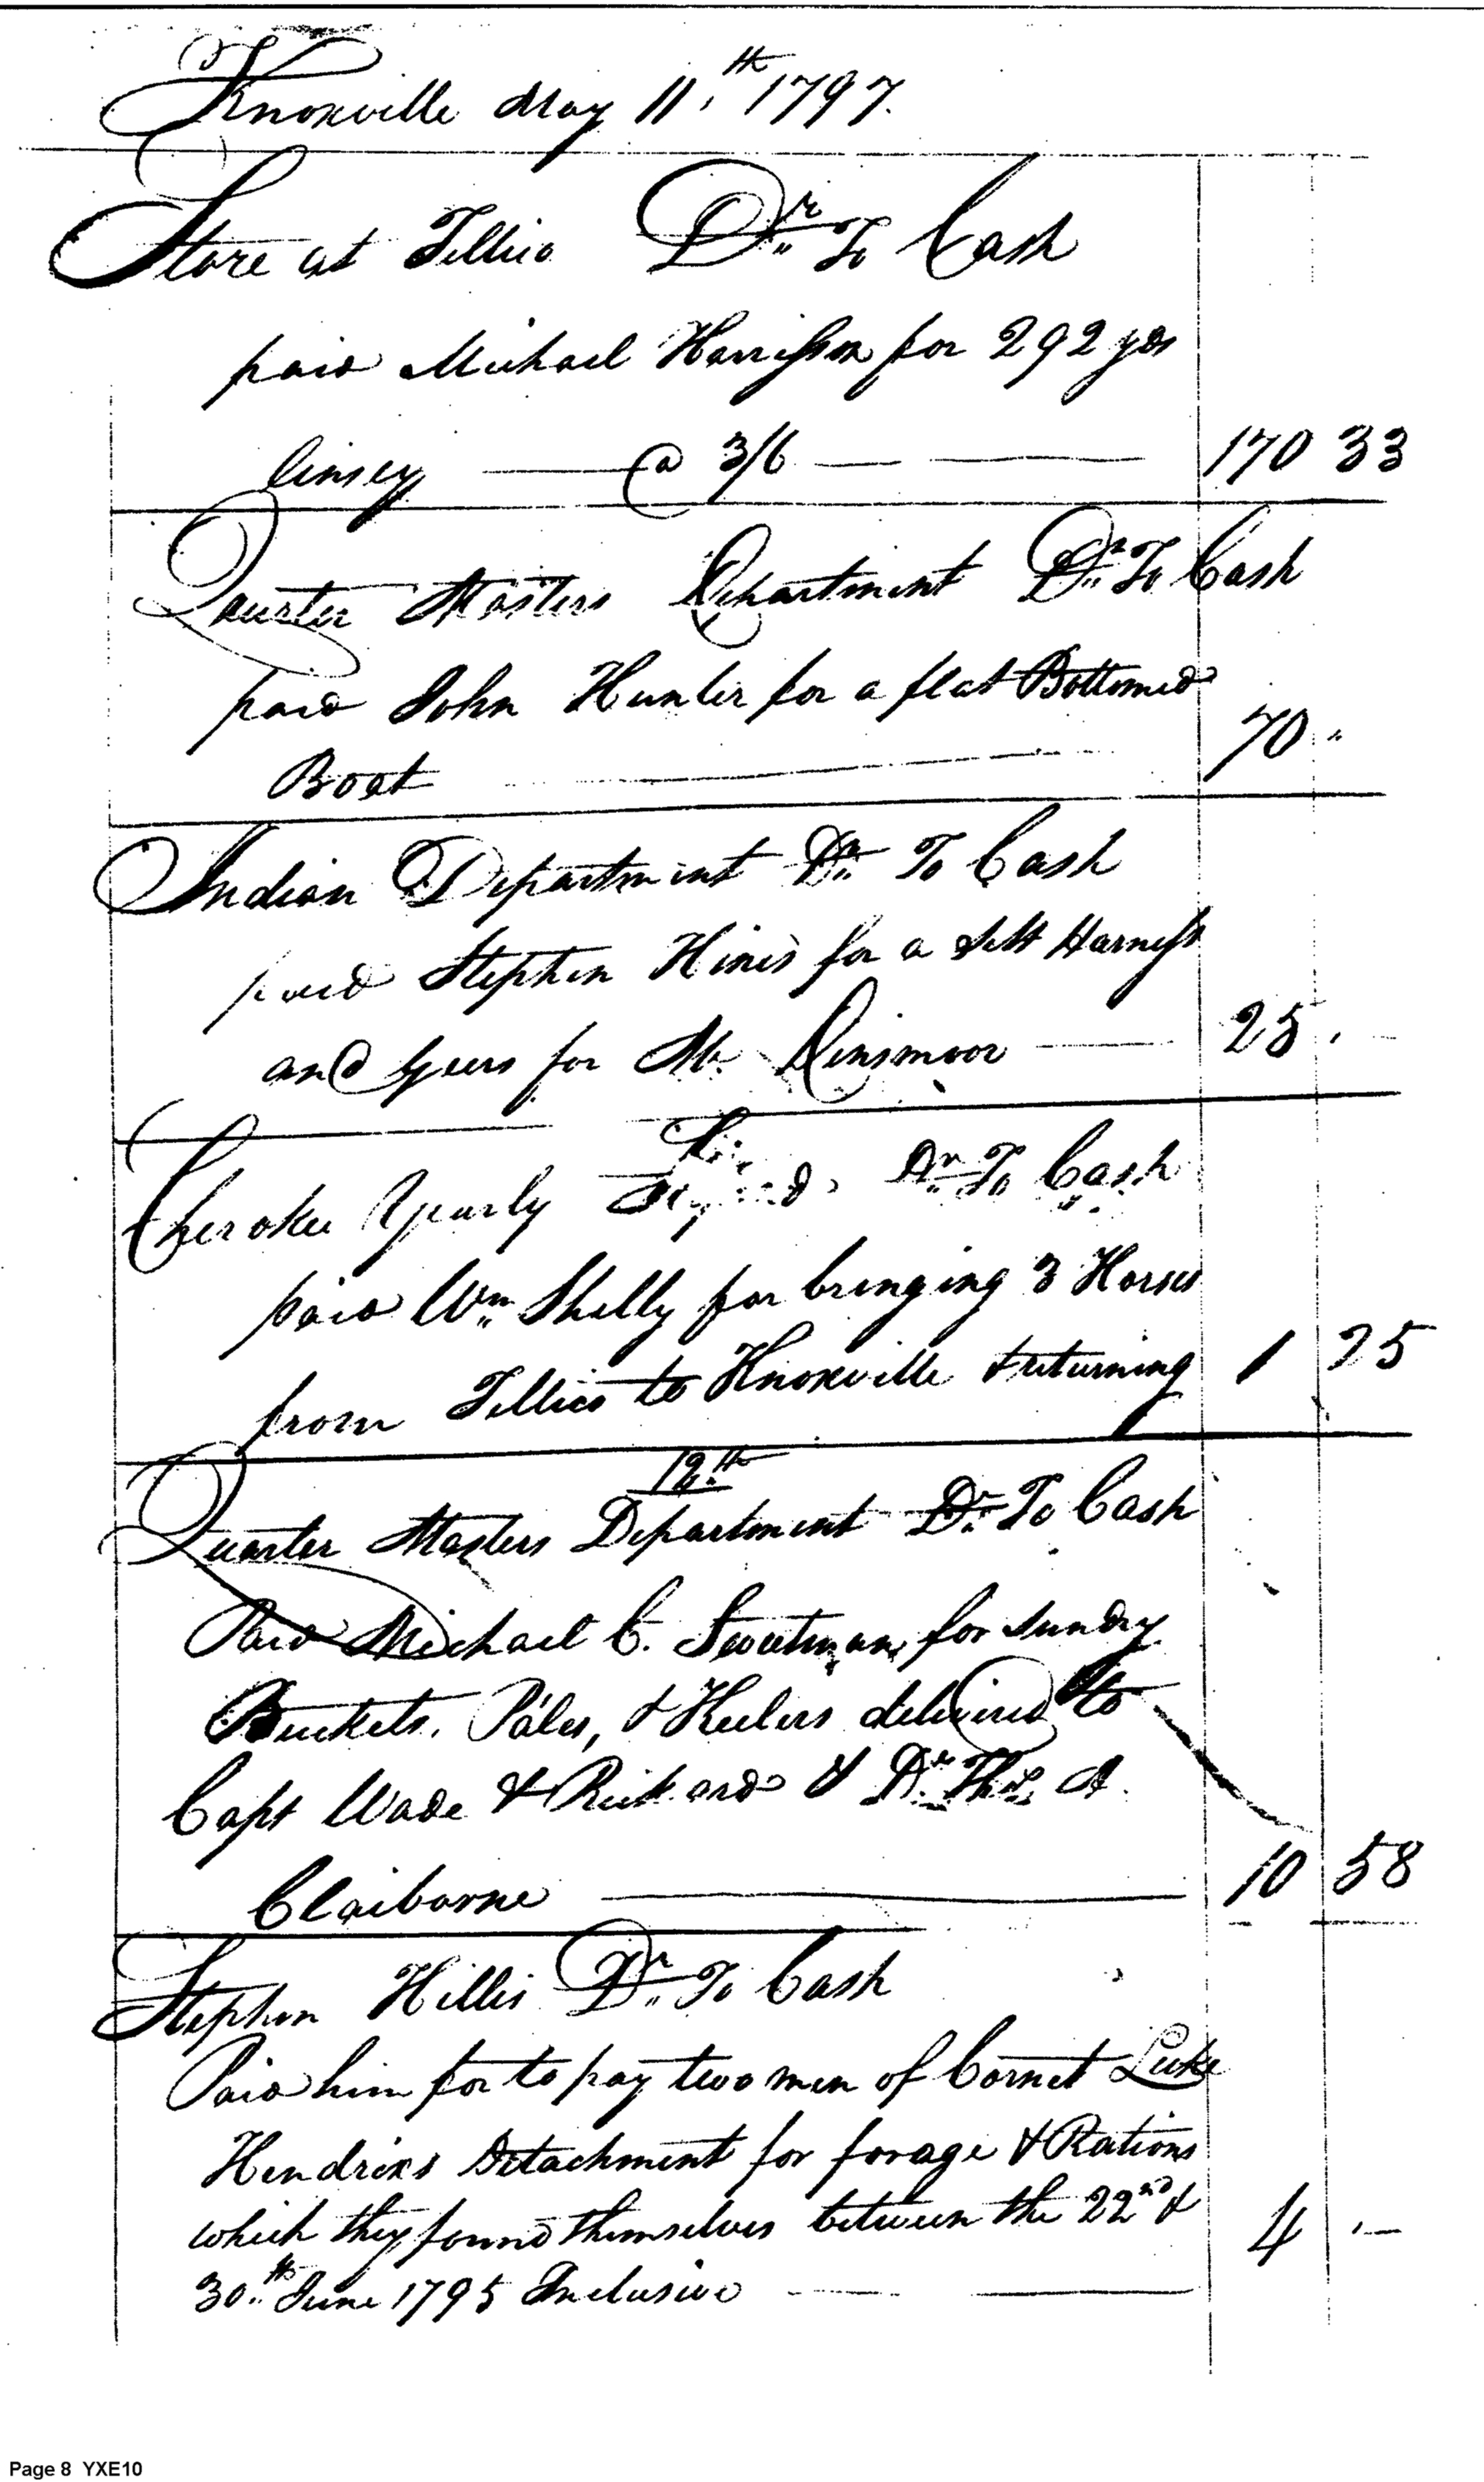 Knoxville May 11,th 1797.
Store at Tellico Dr To Cash
paid Michael Harrisson for 292 yds
linsey @ 3/6 170 33
Quarter Masters Department Dr To Cash
paid John Hunter for a flat Bottomed
Boat 70 "
Indian Department Dr To Cash
paid Stephen Hines for a Sett Harness
and Geers for Mr. Dinsmoor 25
Cherokee Yearly Dr To Cash
paid Wm Shelly for bringing 3 Horses
from Tellico to Knoxville & returning 1 25
12th
Quarter Masters Department Dr To Cash
Paid Michael C. Sweetman for Sundry
Buckets, Pales, & Keelers delivired to
Capt Wade & Rickard & Dr Thos A.
Claiborne 10 58
Stephen Hillis Dr To Cash
Paid him for to pay two men of Cornet Luke
Hendrixs Detachment for forage & Rations
which they found themselves between the 22nd & 4
30th June 1795 Inclusive
Page 8 YXE10